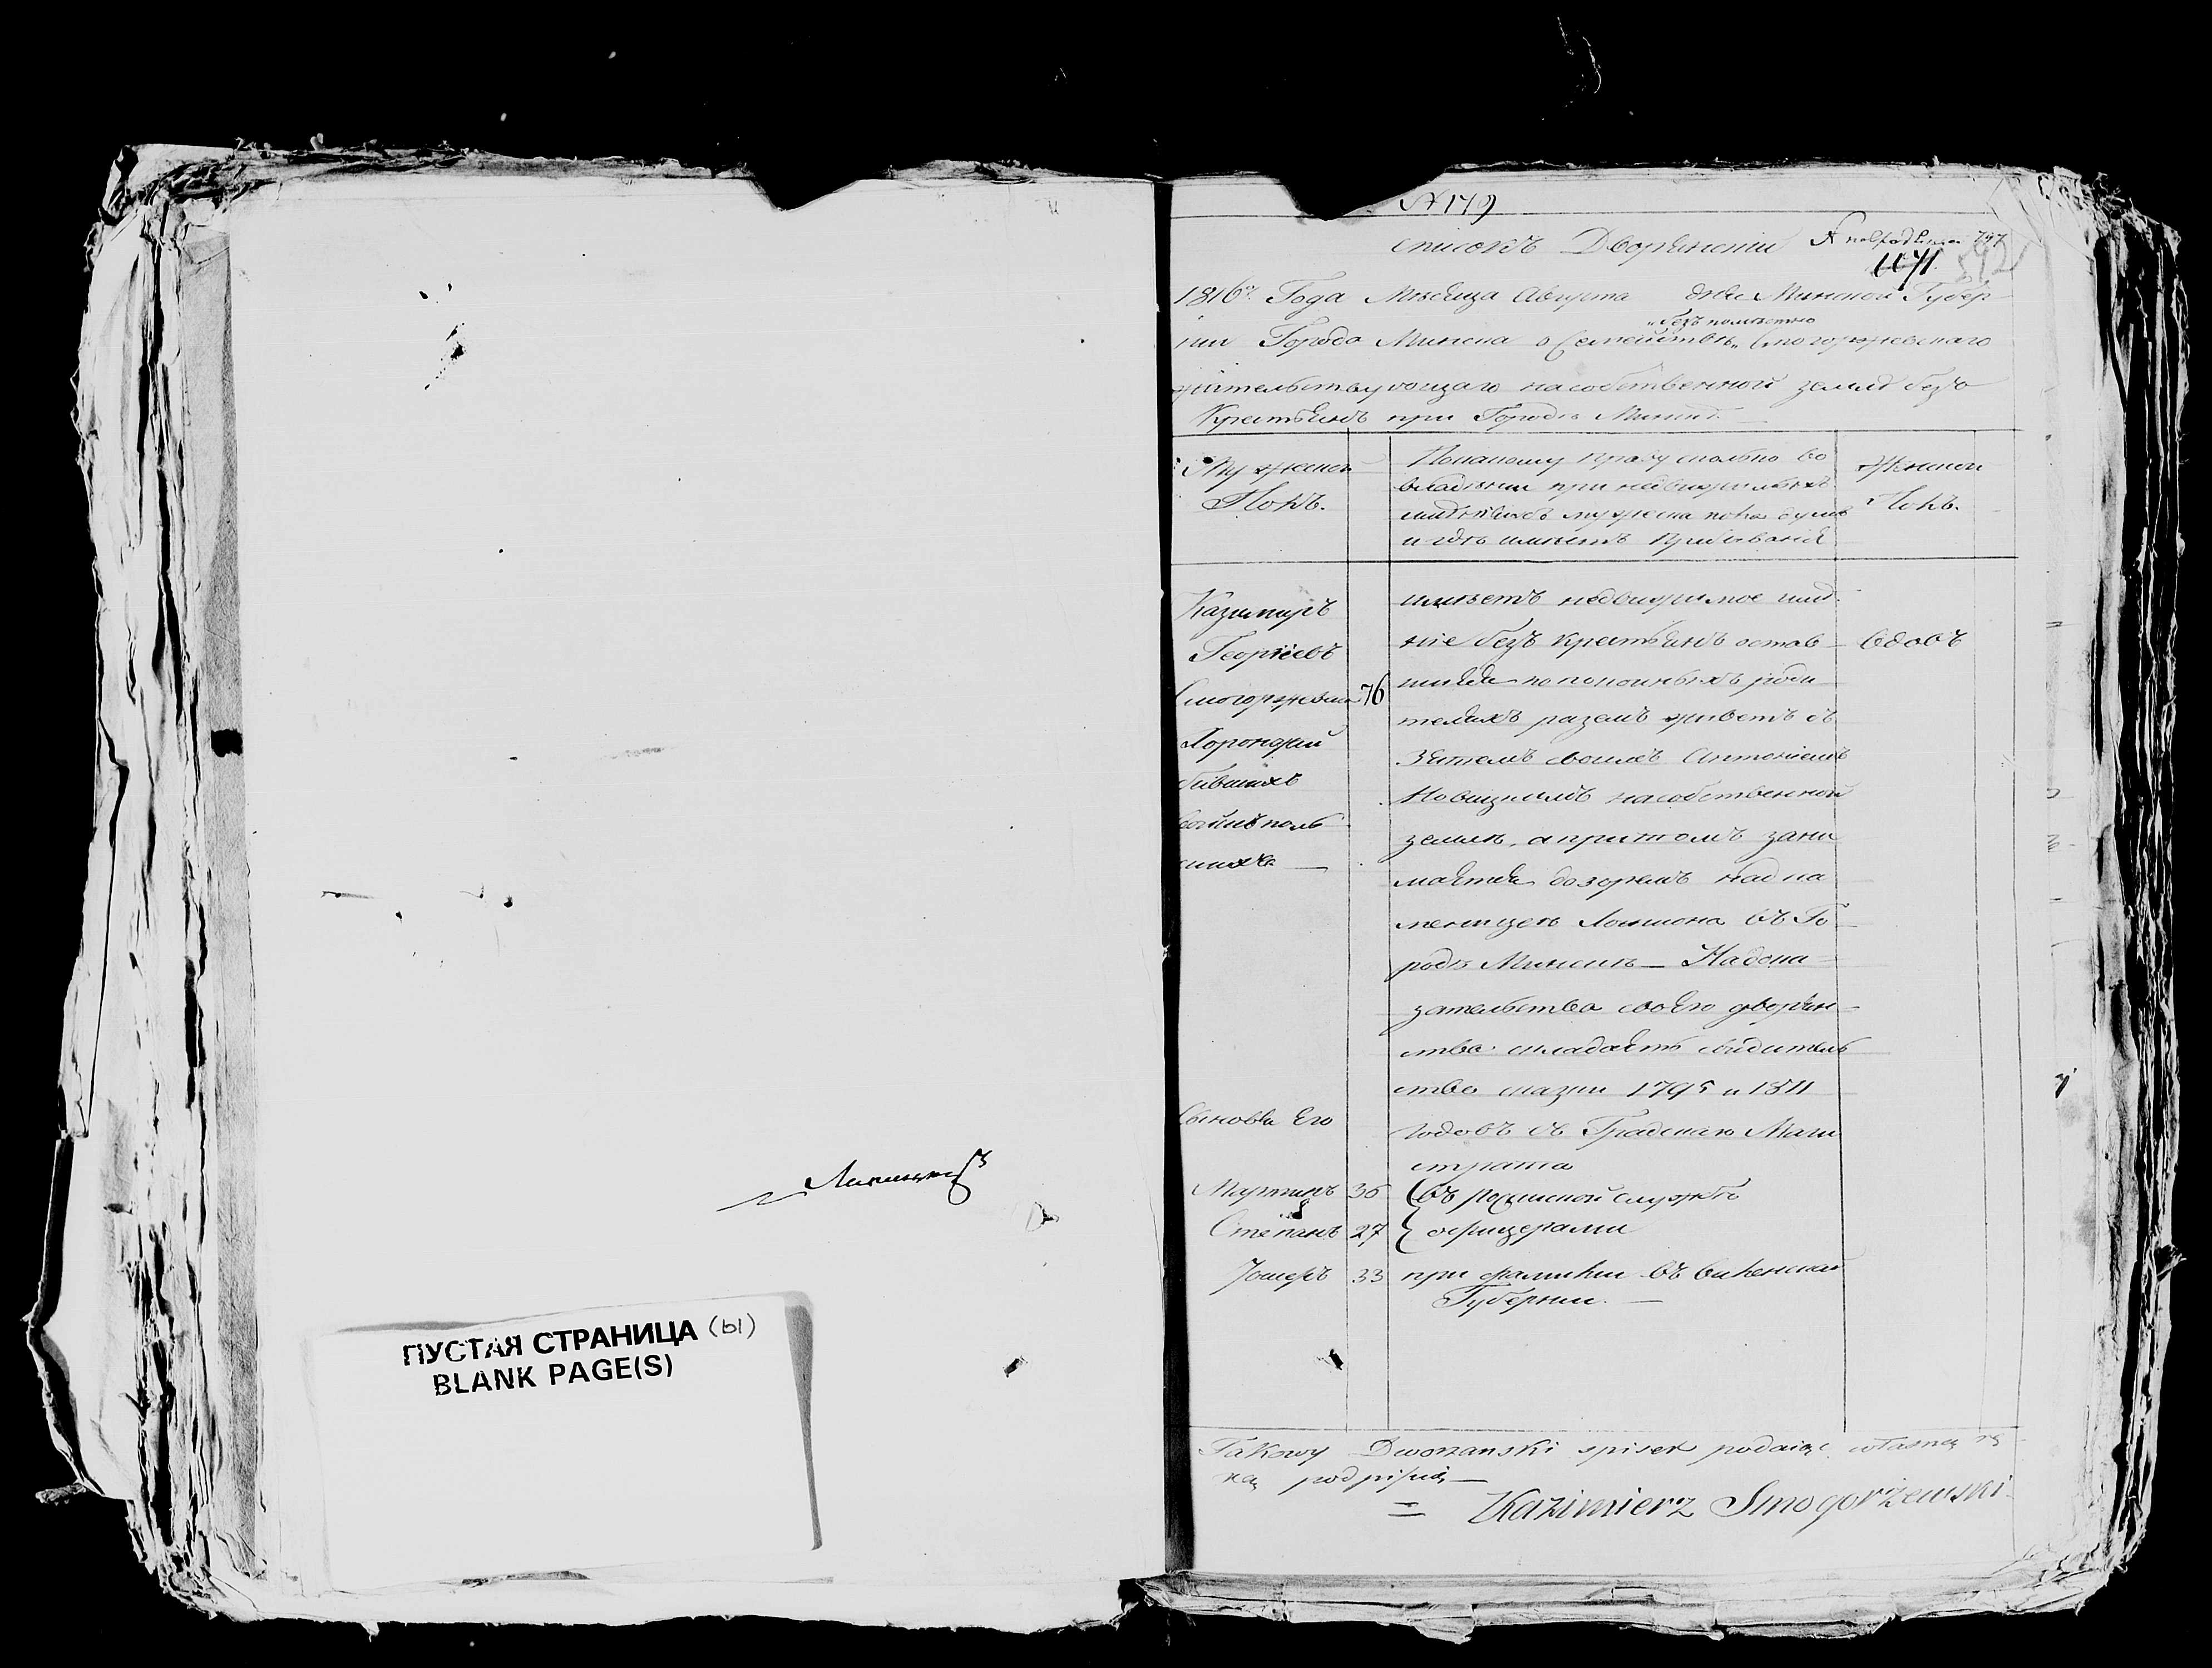 Липицкій
ПУСТАЯ СТРАНИЦА (ы)
BLANK PAGE(S)
№ 179
списокъ Дворянский
1816го Года Месяца Августа дня Минской Губер-
безъ поместно
нии Города Минска о Семействе Смогоржевскаго
жительствующаго на собственной земле безъ
Крестьянъ при Городе Минске
Мужеской
Полъ.
По какому праву сколько во
владении при недвижимыхъ
имениахъ мужеска пола душъ
и где имеетъ пребывание
Женской
Полъ.
Казимиръ
Георгиевъ
Смогоржевский 76
Хоронжий
бывшихъ
войнъ поль
скихъ
имеетъ недвижимое име
ние безъ крестьянъ остав
шиеся по покойныхъ роди
теляхъ разомъ живетъ съ
Зятемъ своимъ Антониемъ
Новицкимъ на собственной
земле, а притомъ зани
мается дозоремъ над ка
меницею въ Го
роде Минске Надока
зательства своего дворян
ства складаетъ свидетель
ство сказки 1795 и 1811
годовъ съ Градскаго Маги
страта
вдовъ
Сыновья Его
Мартинъ 36 въ российской службе
Степанъ 27 офицерами
Иосифъ 33 при фамилии въ виленской
Губернии.
Takowy Dworzanski spisek podaiąc własną rę
ką podpisuię
= Kazimierz Smogorzewski